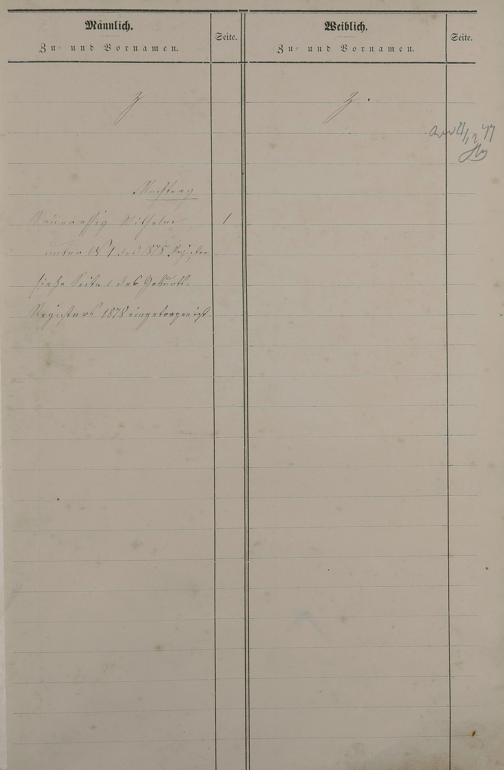 Männlich.
Zu- und Vornamen.
Seite.
Weiblich.
Zu- und Vornamen.
Seite.
Z
Z.
Nachtrag
Wilhelm 1
unter № 1 des 1878 Register
siehe Seite 1 des Geburts-
Registers 1878 eingetragen ist